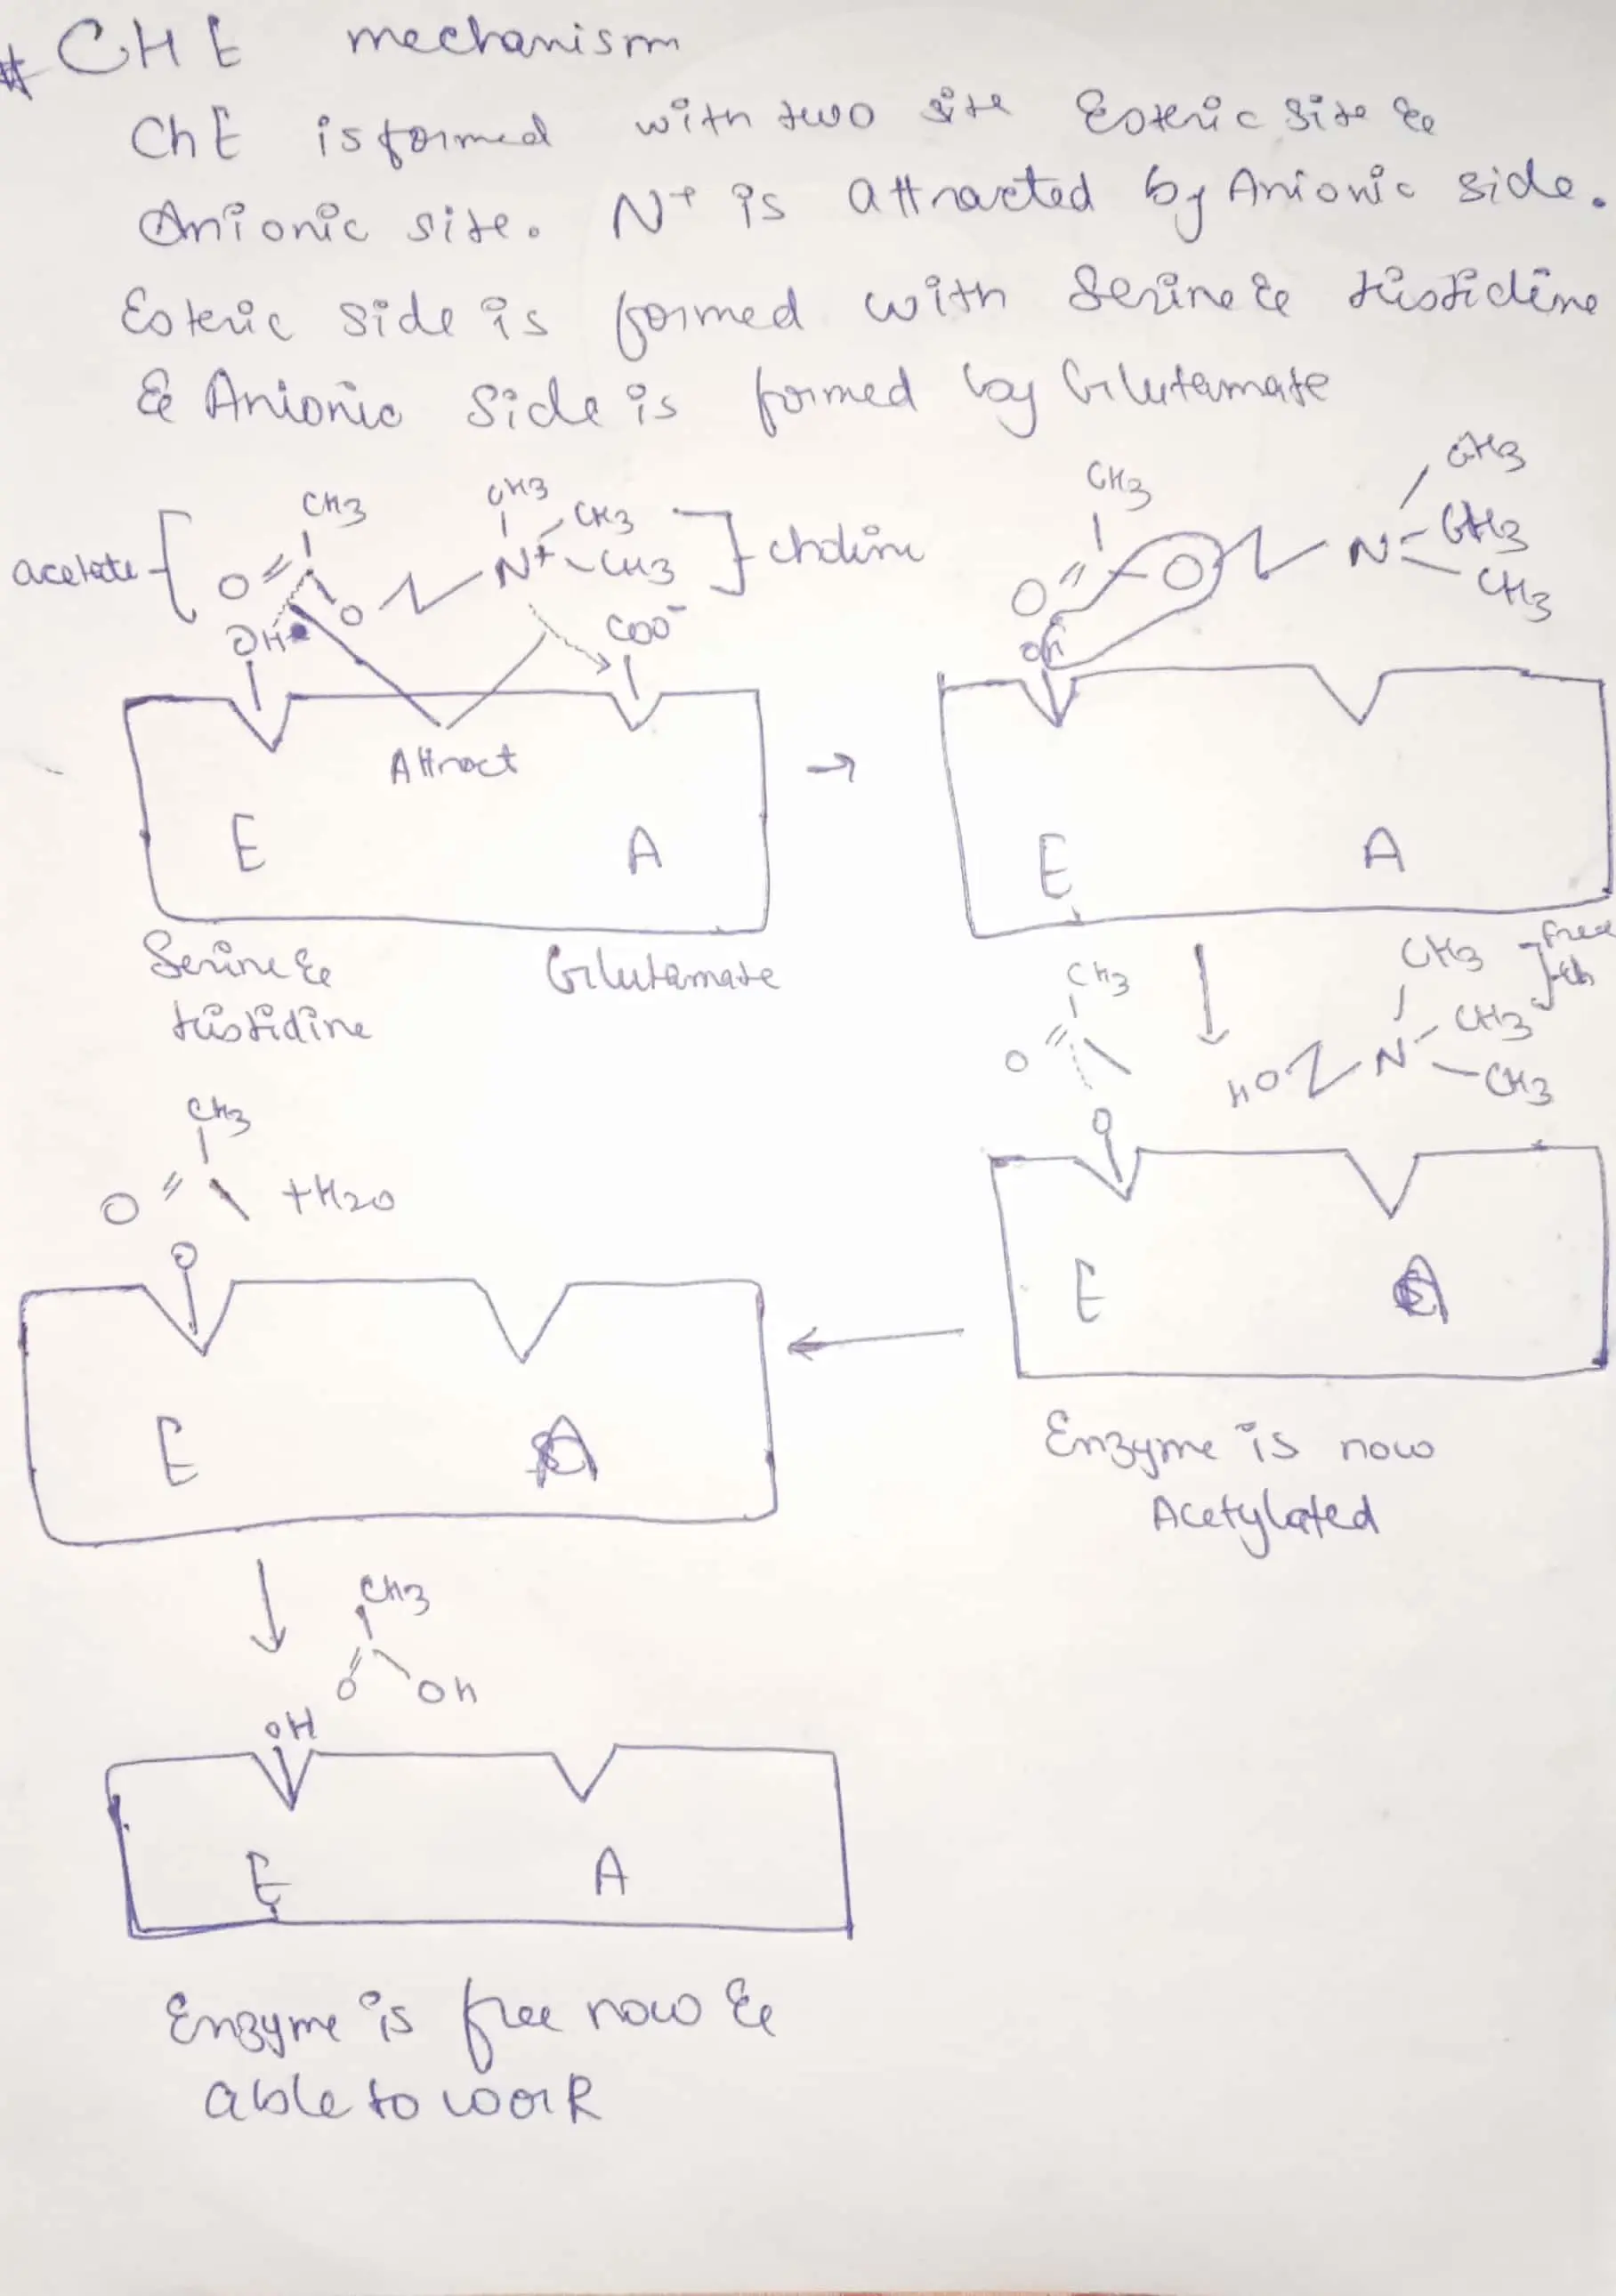 # CHE mechanism
ChE is formed with two site Esteric site &
Anionic site. N+ is attracted by Anionic side.
Esteric side is formed with Serine & Histidine
& Anionic side is formed by Glutamate
acetate
CH3
O
O
OH
CH3
CH3
N+
CH3
choline
COO-
Attract
E
A
Serine &
Histidine
Glutamate
→
CH3
O
O
N
CH3
CH3
CH3
OH
E
A
CH3
O
O
HO
N
CH3
CH3
CH3
free
ch
E
A
Enzyme is now
Acetylated
CH3
O
+H2O
O
E
A
CH3
O
OH
OH
E
A
Enzyme is free now &
able to work